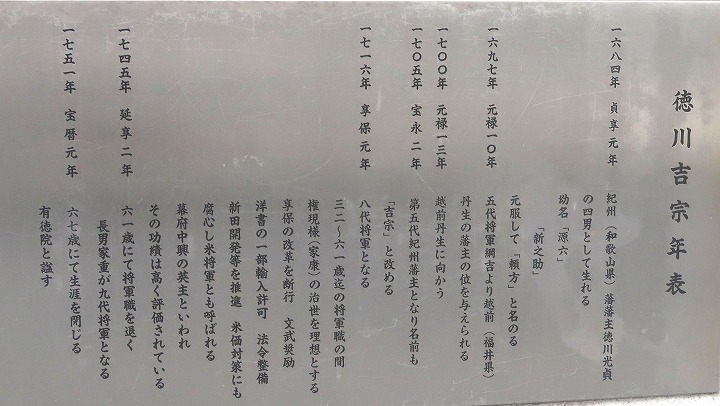 徳川吉宗年表
一六八四年 貞享元年 紀州（和歌山県）藩藩主徳川光貞
の四男として生れる
幼名「源六」
「新之助」
元服して「頼方」と名のる
一六九七年 元禄一〇年 五代将軍綱吉より越前（福井県）
丹生の藩主の位を与えられる
一七〇〇年 元禄一三年 越前丹生に向かう
一七〇五年 宝永二年 第五代紀州藩主となり名前も
「吉宗」と改める
一七一六年 享保元年 八代将軍となる
三二〜六一歳迄の将軍職の間
権現様（家康）の治世を理想とする
享保の改革を断行 文武奨励
洋書の一部輸入許可 法令整備
新田開発等を推進 米価対策にも
腐心し米将軍とも呼ばれる
幕府中興の英主といわれ
その功績は高く評価されている
一七四五年 延享二年 六一歳にて将軍職を退く
長男家重が九代将軍となる
一七五一年 宝暦元年 六七歳にて生涯を閉じる
有徳院と諡す